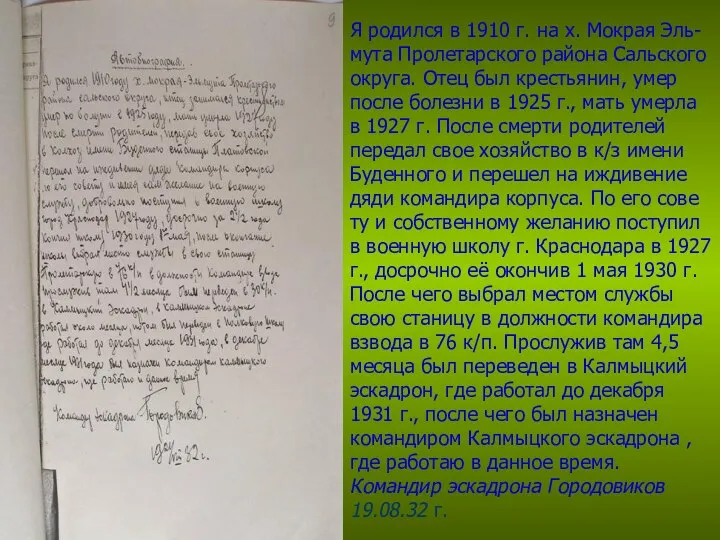 9
Автобиография.
Я родился 1910 году х. Мокрая-Эльмута Пролетарского
района Сальского округа, отец занимался крестьянство
умер по болезни в 1925 году, мать умерла 1927 году
после смерти родителей, передав свое хозяйство
в колхоз имени Буденного станицы Платовской
перешел на иждивение дяди командира корпуса
по его совету и имея свое желание на военную
службу, добровольно поступил в военную школу
город Краснодар 1927 году, досрочно за 2½ года
кончил школу 1930 году 1го мая, после окончание
школы выбрал место службы в свою станицу
Пролетарскую в 76 к/п в должности командира взвода
прослужив там 4½ месяце был переведен в 30 к/п.
в Калмыцкий Эскадрон, в Калмыцком эскадроне
работал около месяца, потом был переведен в Полковую школу
где работал до декабря месяце 1931 года, в декабре
месяце 1931 года был назначен командиром калмыцкого
эскадрона, где работаю и данное время
Командир эскадрона Городовиков.
19/VIII 32 г.
Я родился в 1910 г. на х. Мокрая Эль-
мута Пролетарского района Сальского
округа. Отец был крестьянин, умер
после болезни в 1925 г., мать умерла
в 1927 г. После смерти родителей
передал свое хозяйство в к/з имени
Буденного и перешел на иждивение
дяди командира корпуса. По его сове
ту и собственному желанию поступил
в военную школу г. Краснодара в 1927
г., досрочно её окончив 1 мая 1930 г.
После чего выбрал местом службы
свою станицу в должности командира
взвода в 76 к/п. Прослужив там 4,5
месяца был переведен в Калмыцкий
эскадрон, где работал до декабря
1931 г., после чего был назначен
командиром Калмыцкого эскадрона ,
где работаю в данное время.
Командир эскадрона Городовиков
19.08.32 г.